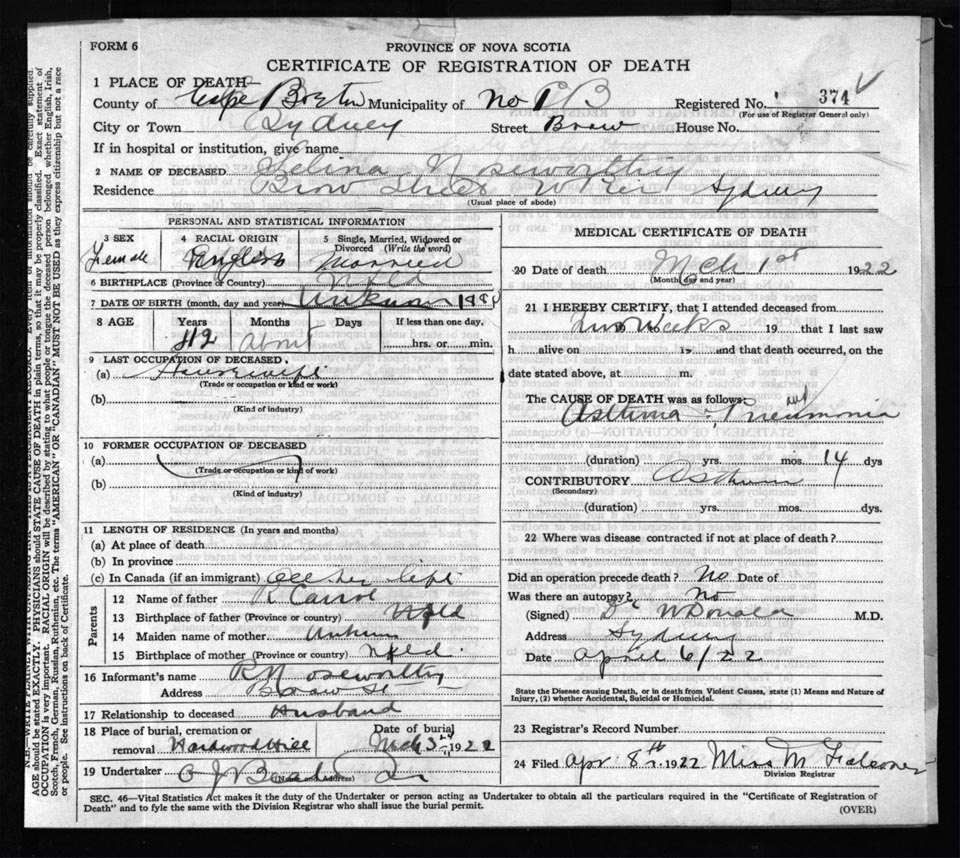 FORM 6
PROVINCE OF NOVA SCOTIA
CERTIFICATE OF REGISTRATION OF DEATH
1 PLACE OF DEATH
County of Cape Breton Municipality of No 1 CB Registered No. 374
(For use of Registrar General only)
City or Town Sydney Street House No.
If in hospital or institution, give name
2 NAME OF DECEASED Selina Noseworthy
Residence Street Sydney
(Usual place of abode)
PERSONAL AND STATISTICAL INFORMATION
3 SEX 4 RACIAL ORIGIN 5 Single, Married, Widowed or Divorced (Write the word)
Female English Married
6 BIRTHPLACE (Province or Country) Nfld
7 DATE OF BIRTH (month, day and year)
8 AGE Years Months Days If less than one day,
42 about hrs. or min.
9 LAST OCCUPATION OF DECEASED.
(a) Housewife
(Trade or occupation or kind of work)
(b)
(Kind of industry)
10 FORMER OCCUPATION OF DECEASED
(a)
(Trade or occupation or kind of work)
(b)
(Kind of industry)
11 LENGTH OF RESIDENCE (In years and months)
(a) At place of death
(b) In province
(c) In Canada (if an immigrant) all her life
Parents
12 Name of father R Carrol
13 Birthplace of father (Province or country) Nfld
14 Maiden name of mother
15 Birthplace of mother (Province or country) Nfld.
16 Informant's name R Noseworthy
Address St
17 Relationship to deceased Husband
18 Place of burial, cremation or removal Hardwood Hill
Date of burial Mch 3 1922
19 Undertaker
(Name and address)
MEDICAL CERTIFICATE OF DEATH
20 Date of death Mch 1st 1922
(Month, day and year)
21 I HEREBY CERTIFY, that I attended deceased from
Two Weeks 19 that I last saw
h alive on 19 and that death occurred, on the
date stated above, at m.
The CAUSE OF DEATH was as follows:
Asthma and Pneumonia
(duration) yrs. mos. 14 dys
CONTRIBUTORY
(Secondary)
(duration) yrs. mos. dys.
22 Where was disease contracted if not at place of death?
Did an operation precede death? No Date of
Was there an autopsy? No
(Signed) M.D.
Address Sydney
Date April 6/22
State the Disease causing Death, or in death from Violent Causes, state (1) Means and Nature of
Injury, (2) whether Accidental, Suicidal or Homicidal.
23 Registrar's Record Number
24 Filed Apr 8th 1922 Miss M
Division Registrar
SEC. 46—Vital Statistics Act makes it the duty of the Undertaker or person acting as Undertaker to obtain all the particulars required in the "Certificate of Registration of
Death" and to fyle the same with the Division Registrar who shall issue the burial permit.
(OVER)
AGE should be stated EXACTLY. PHYSICIANS should STATE CAUSE OF DEATH in plain terms, so that it may be properly classified. Exact statement of
OCCUPATION is very important. RACIAL ORIGIN will be described by stating to what people or tongue the deceased person belonged whether English, Irish,
Scotch, French, German, Russian, Ruthenian, etc. The terms "AMERICAN" OR "CANADIAN" MUST NOT BE USED as they express citizenship but not a race
or people. See instructions on back of Certificate.